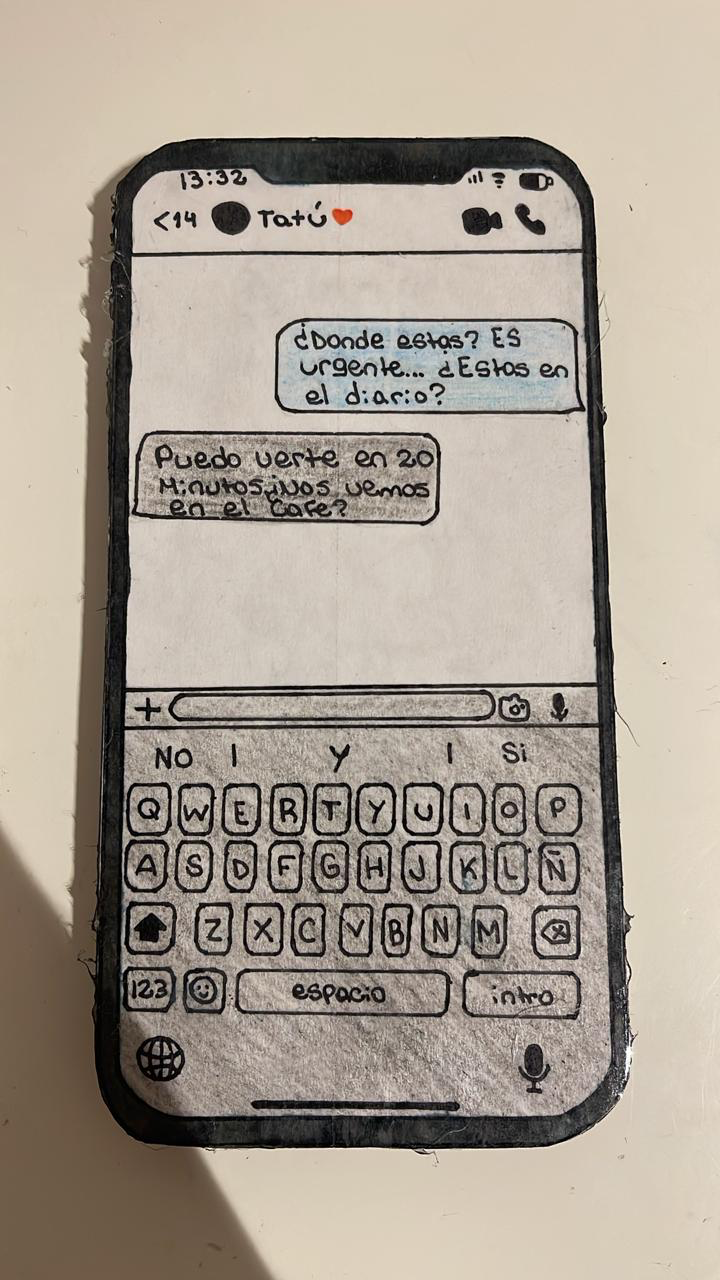 13:32
<14 Tatú❤️
¿Donde estas? ES
urgente... ¿Estas en
el diario?
Puedo verte en 20
Minutos ¿Nos vemos
en el Cafe?
+
NO | Y | Si
Q W E R T Y U I O P
A S D F G H J K L Ñ
Z X C V B N M
123 espacio intro